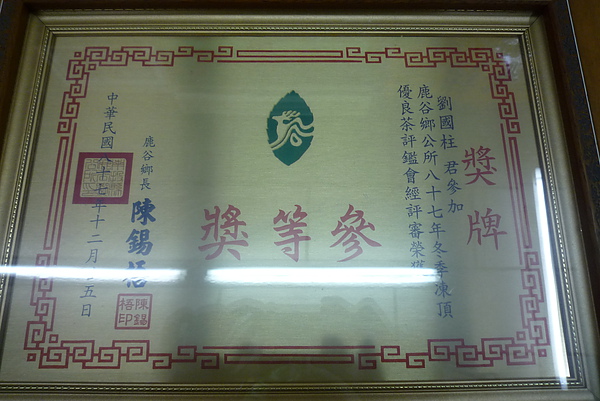 獎牌
劉國柱 君參加
鹿谷鄉公所八十七年冬季凍頂
優良茶評鑑會經評審榮獲
參等獎
鹿谷鄉長 陳錫梧
陳錫梧印
中華民國八十七年十二月 五日